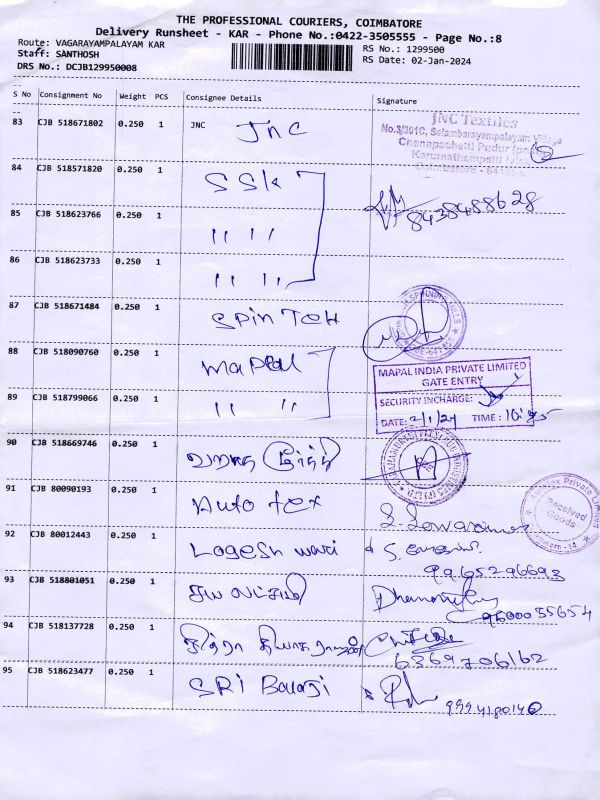 THE PROFESSIONAL COURIERS, COIMBATORE
Delivery Runsheet - KAR - Phone No.:0422-3505555 - Page No.:8
Route: VAGARAYAMPALAYAM KAR
RS No.: 1299500
Staff: SANTHOSH
RS Date: 02-Jan-2024
DRS No.: DCJB129950008
S No Consignment No Weight PCS Consignee Details Signature
83 CJB 518671802 0.250 1 JNC JNC
JNC Textiles
No.3/391C, Selambarayampalayam Village
Chennapachetti Pudur
Karumathampatti
Coimbatore
84 CJB 518571820 0.250 1 SSK
8438488628
85 CJB 518623766 0.250 1 " "
86 CJB 518623733 0.250 1 " "
87 CJB 518671484 0.250 1 SPINTCH
SPINNING MILLS
88 CJB 518090760 0.250 1 Mapal
MAPAL INDIA PRIVATE LIMITED
GATE ENTRY
89 CJB 518799066 0.250 1 " "
SECURITY INCHARGE:
DATE: 2/1/24 TIME :
90 CJB 518669746 0.250 1
91 CJB 80090193 0.250 1 Auto tex
Private Limited
Received
Goods
92 CJB 80012443 0.250 1 Logesh
9965296693
93 CJB 518801051 0.250 1 ஜெய லட்சுமி
9600055654
94 CJB 518137728 0.250 1 சித்ரா
6369706162
95 CJB 518623477 0.250 1 SRI Balaji